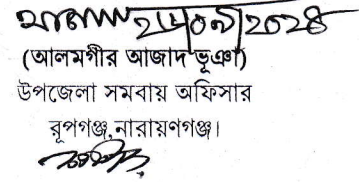 (আলমগীর আজাদ ভূঞা)
উপজেলা সমবায় অফিসার
রূপগঞ্জ,নারায়ণগঞ্জ।